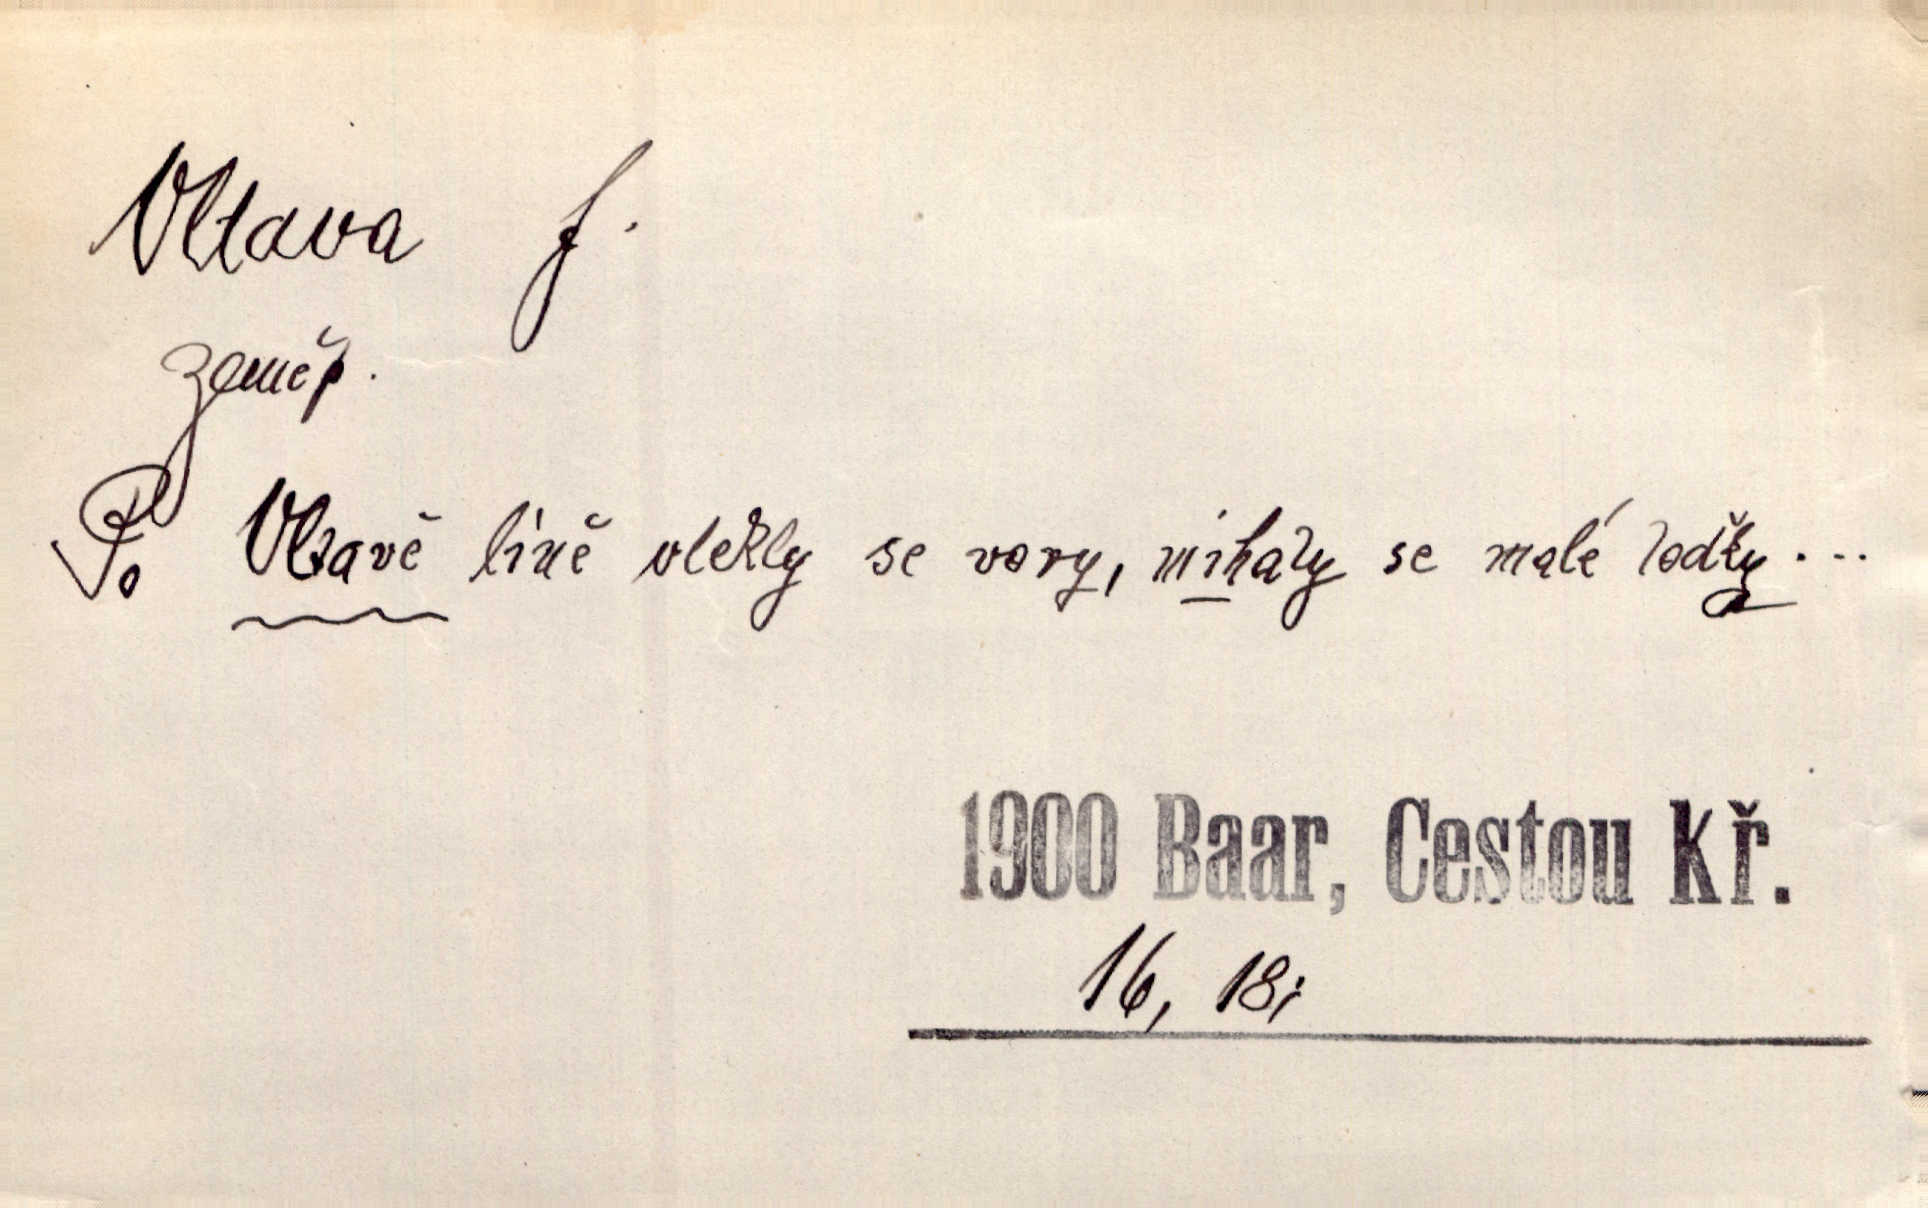 Vltava f.
zeměp.
Po Vltavě líně vlekly se vory, míhaly se malé loďky...
1900 Baar, Cestou Kř.
16, 18;